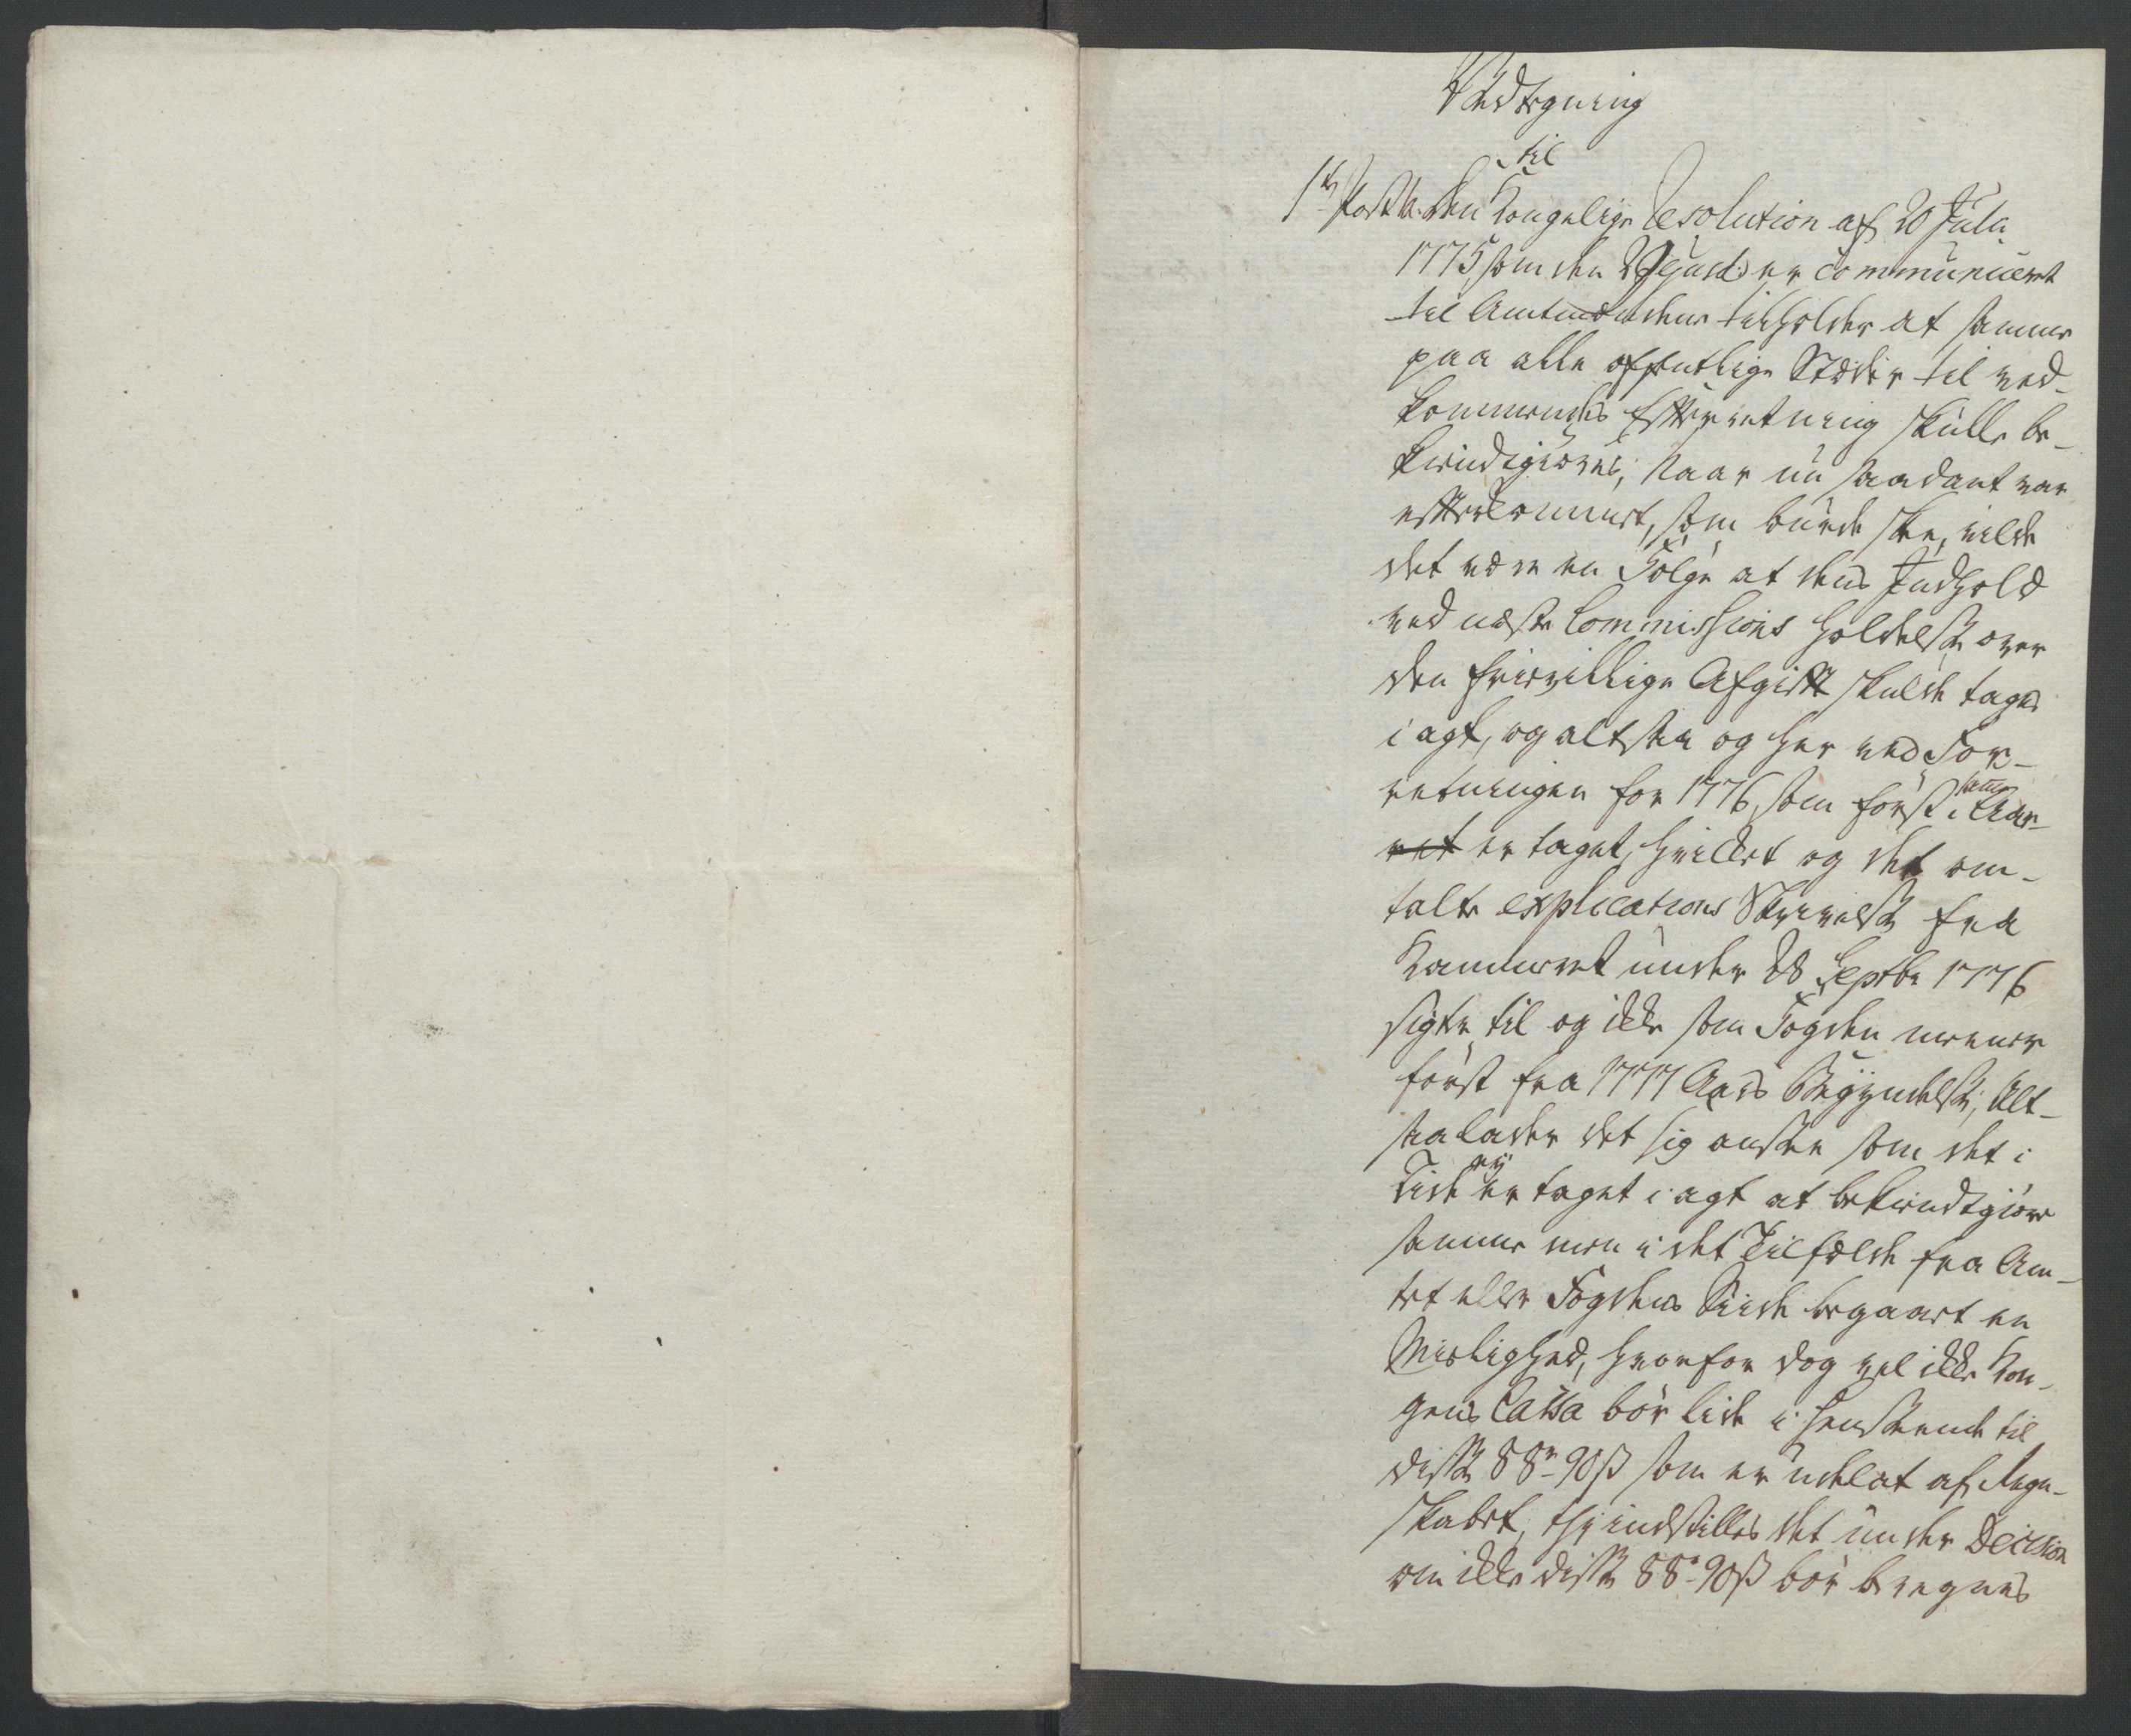 Vedtegning
til
1te Post b. Den Kongelige Resolution af 20 Julii
1775 som den 29 Ejusd: er Communiceret
til Amtmændene tilholder at samme
paa alle offentlige Stæder til ved-
kommendes Efterretning skulle be-
kiendtgiøres, Naar nu saadant var
efterkommet, som burde skee, vilde
det være en Følge at dens Indhold
ved næste Commissions Holdelse over
den frievillige Afgift skulde tages
i agt, og altsaa og her ved For-
retningen for 1776 som først i samme Aar
ret er taget, hvilket og det om-
talte explications Skrivelse fra
Kammeret under 28 Septbr 1776
sigte til og ikke som Fogden meener
først fra 1777 Aars Begyndelse; Alt-
saa lader det sig ansee som det i
Tide ej er taget i agt at bekiendtgiøre
samme men i det Tilfælde fra Am-
tet eller Fogdens Siide begaaet en
Mislighed, hvorfor dog vel ikke Kon-
gens Cassa bør lide i Henseende til
disse 88r 90s som er udelat af Regn-
skabet, thi indstilles det under Decision
om ikke disse 88r 90s bør beregnes